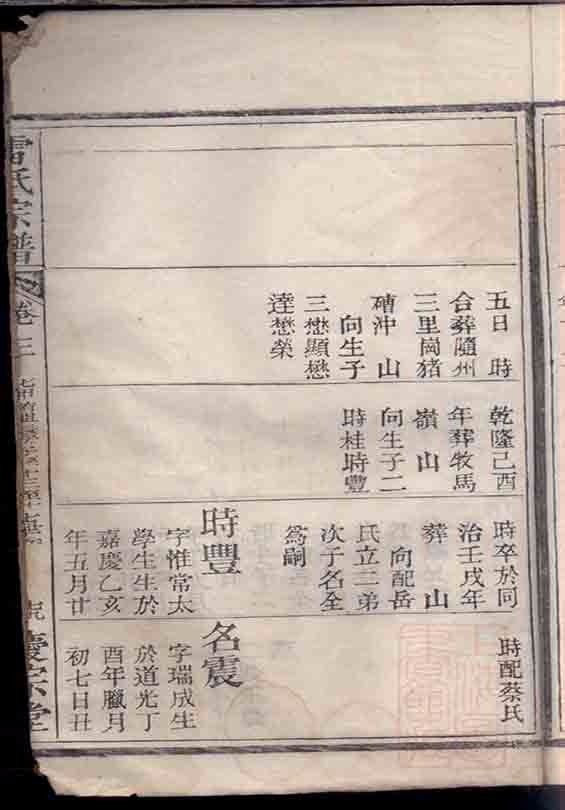 五日　時
合葬隨州
三里崗猪
磧沖　山
向生子
三懋顯懋
達懋榮
乾隆己酉
年葬牧馬
嶺　山
向生子二
時桂時豐
時卒於同
治壬戌年
葬　山
向配岳
氏立二弟
次子名全
爲嗣
時豐
字惟常太
學生生於
嘉慶乙亥
年五月廿
時配蔡氏
名震
字瑞成生
於道光丁
酉年臘月
初七日丑
雷氏宗譜
卷三
慶宗堂